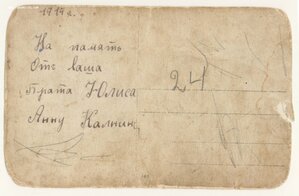 1914 г.
На память
Отъ Ваша
брата Юлиса
Анну Калнин
24